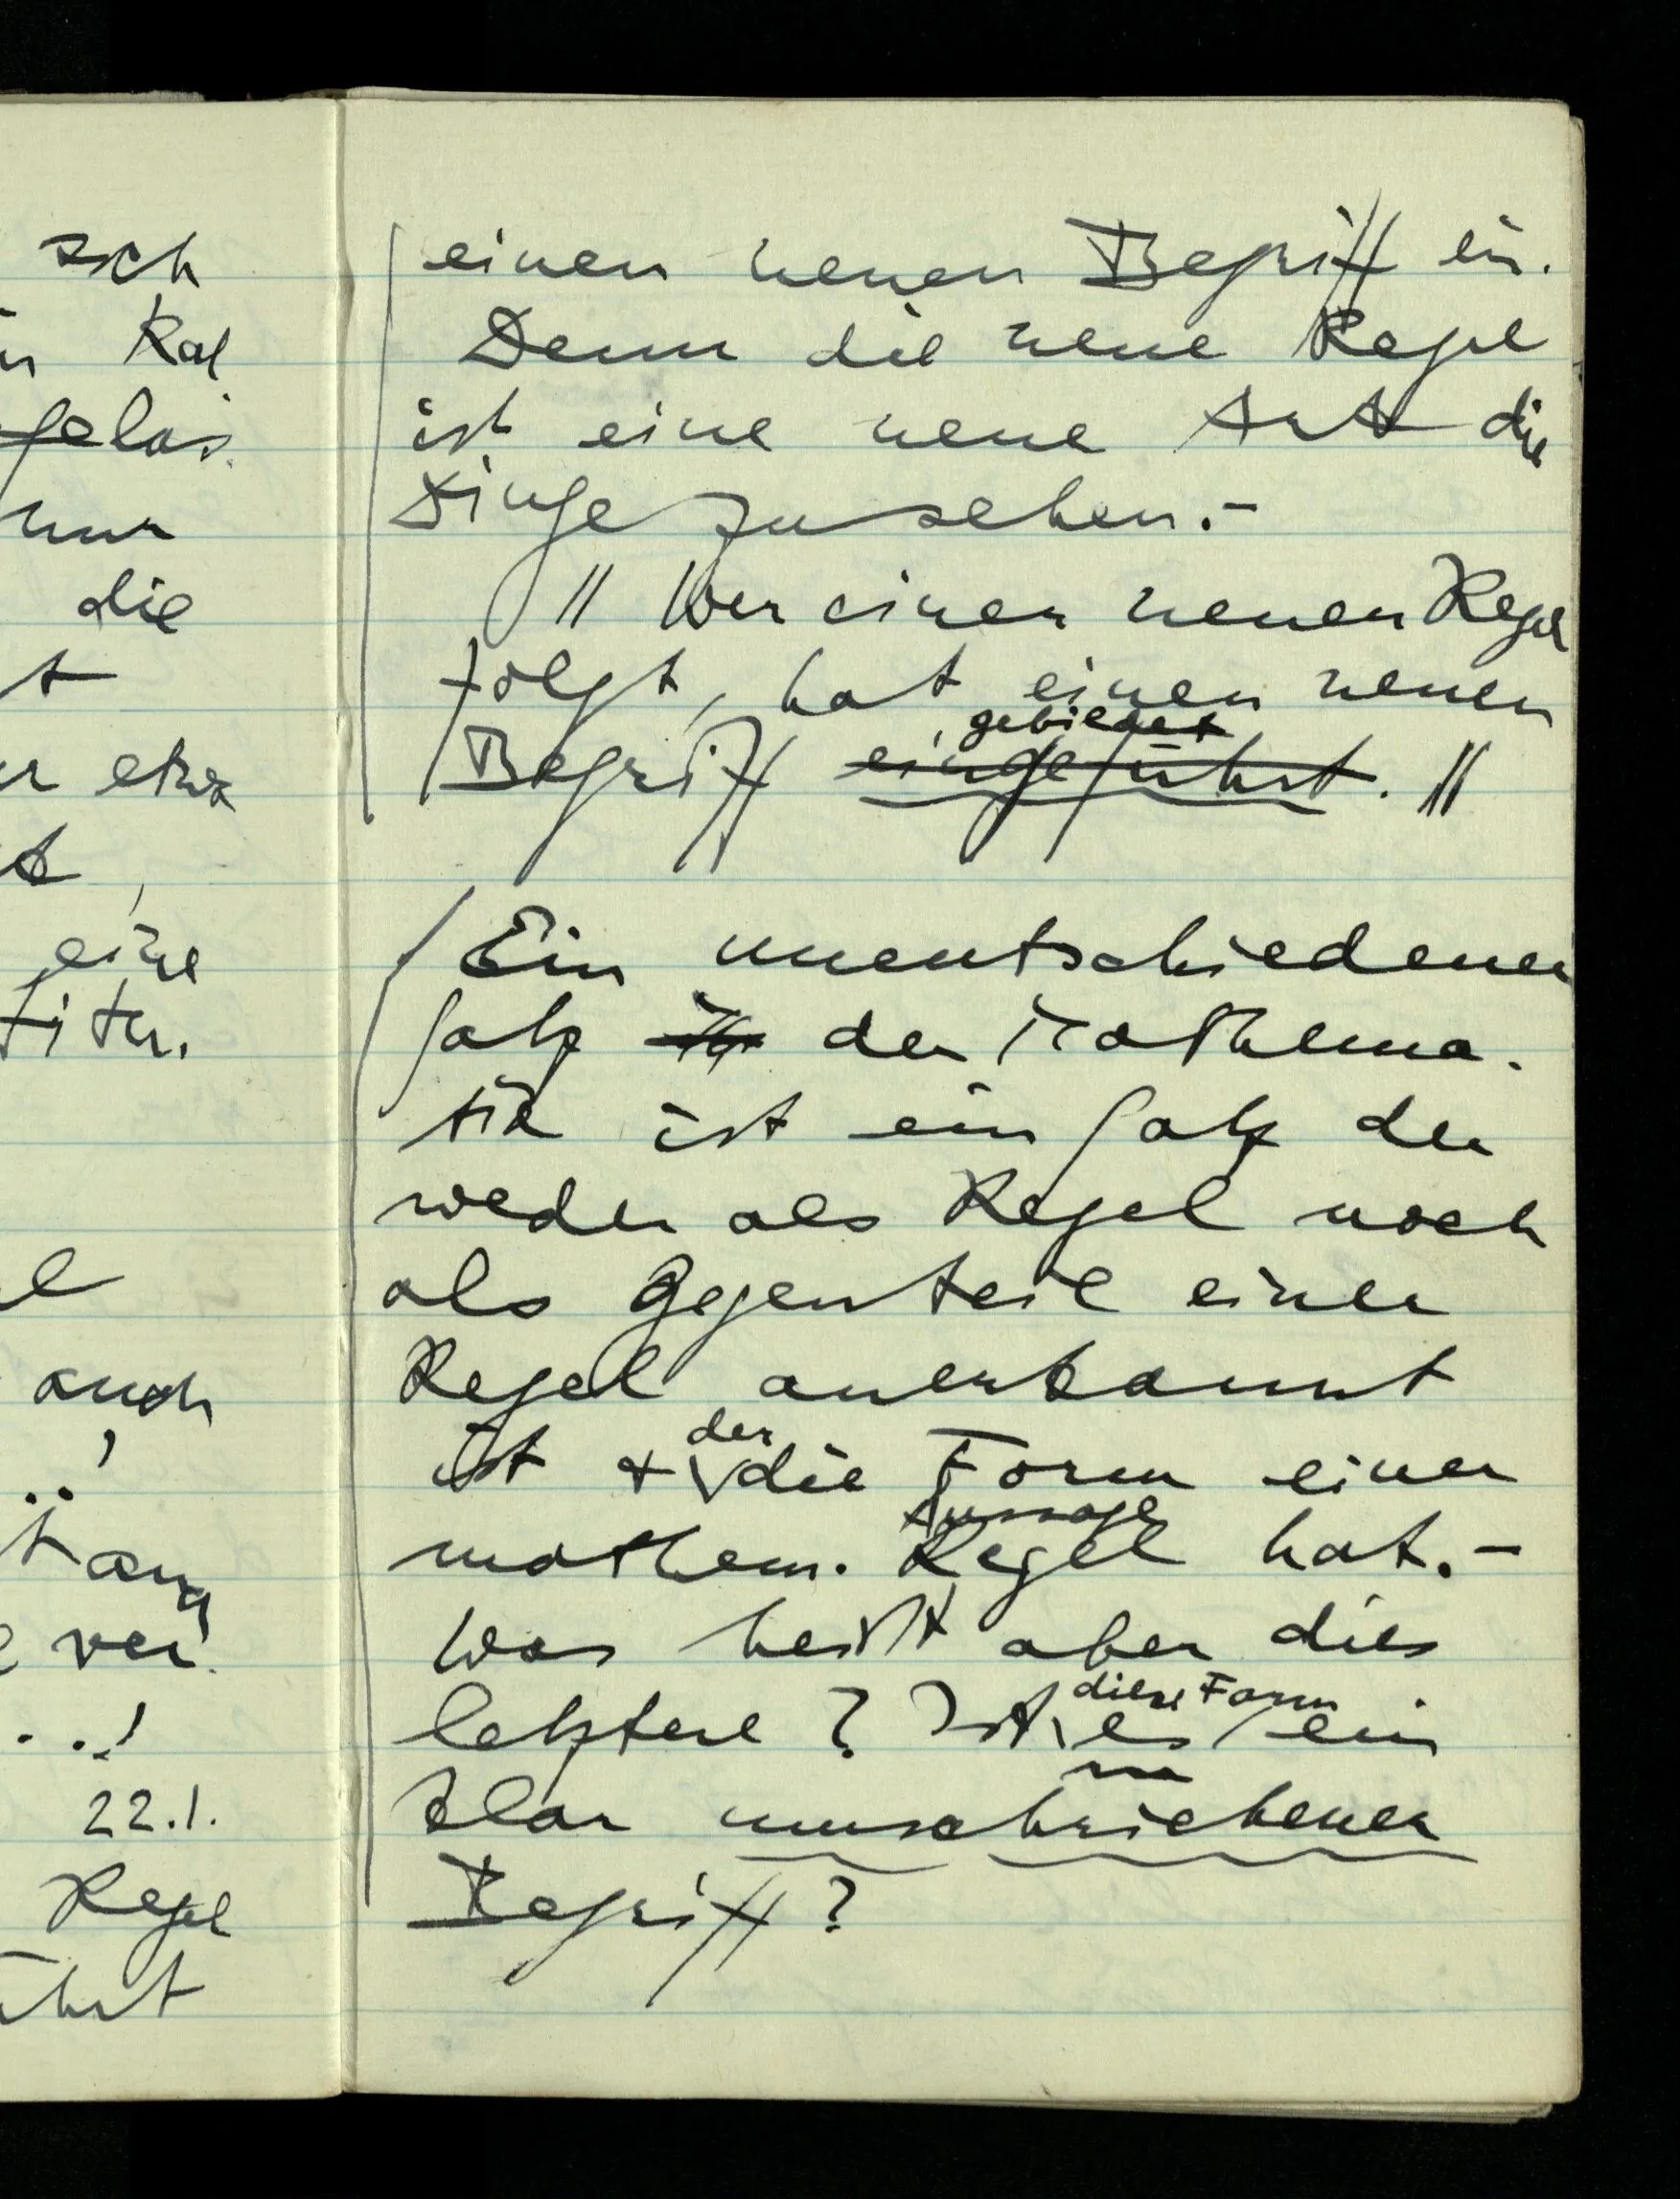 sch
Kal
gelas.
nur
die
t
er etwa
eine
auch
ver
22.1.
Regel
ührt
einen neuen Begriff ein.
Denn die neue Regel
ist eine neue Art die
Dinge zu sehen.–
|| Wer einer neuen Regel
folgt, hat einen neuen
gebildet
Begriff eingeführt. ||
Ein unentschiedener
Satz der Mathema-
tik ist ein Satz der
weder als Regel noch
als Gegenteil einer
Regel anerkannt
der
ist + die Form einer
Aussage
mathem. Regel hat.–
Was heißt aber dies
diese Form
letztere? Ist es ein
klar umschriebener
Begriff?